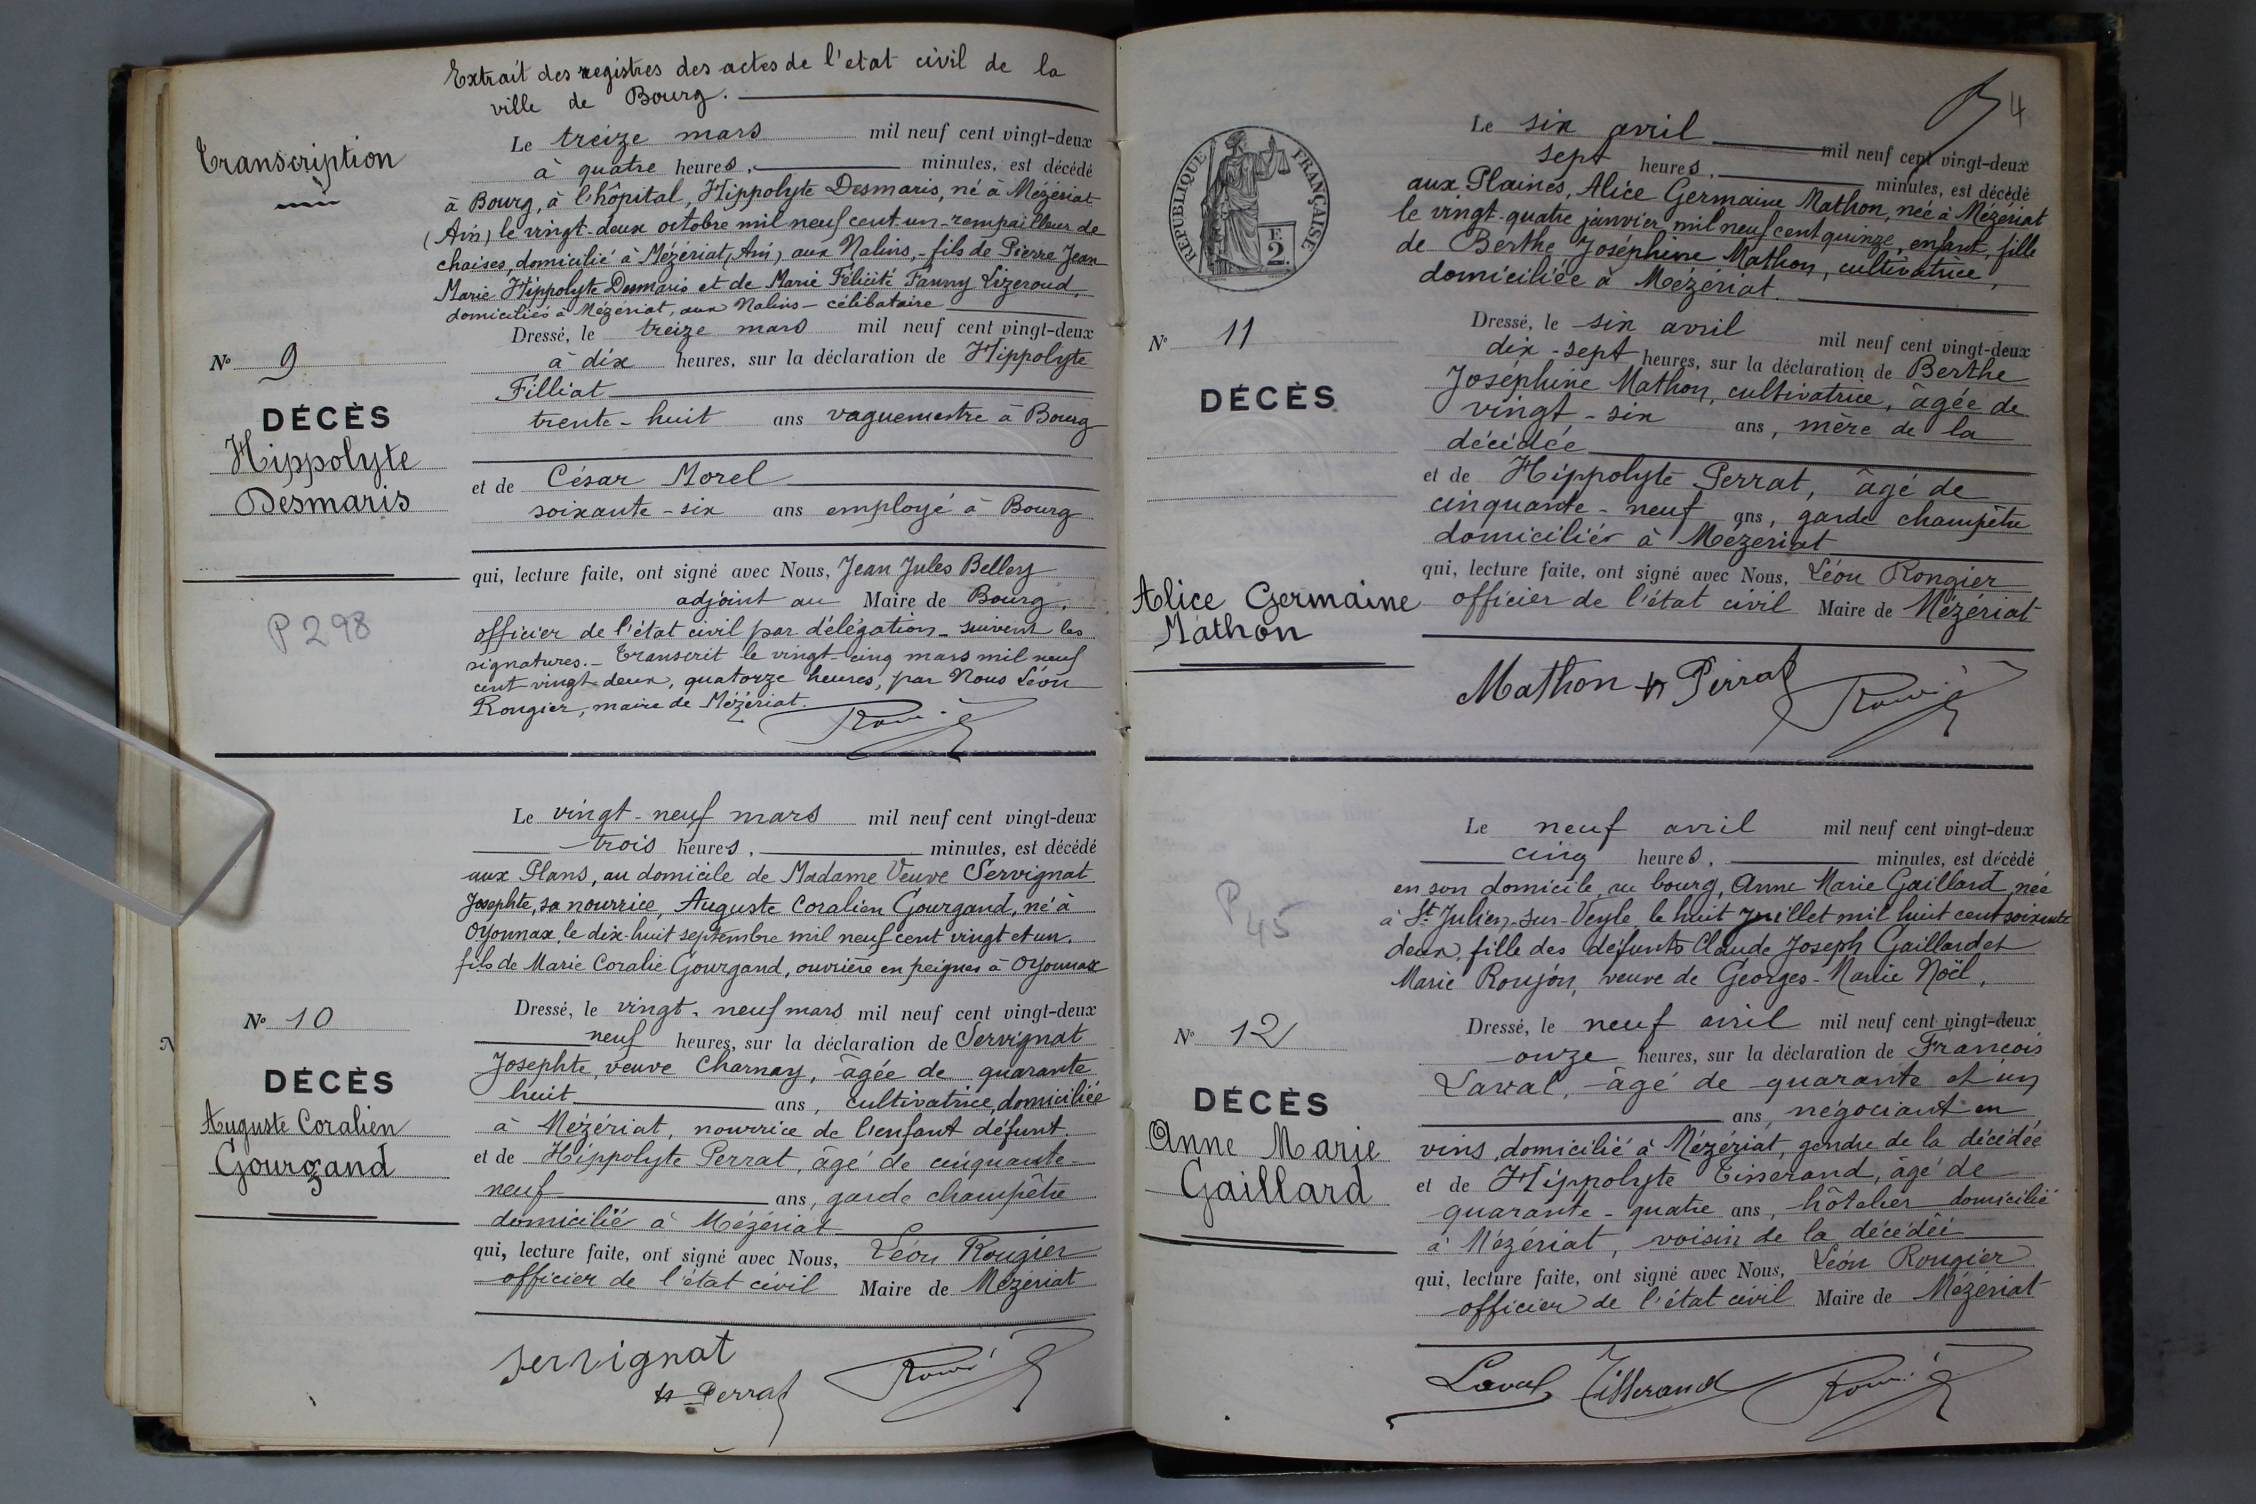 Extrait des registres des actes de l'etat civil de la
ville de Bourg.
Transcription
Le treize mars mil neuf cent vingt-deux
à quatre heures, minutes, est décédé
à Bourg, à l'hôpital, Hippolyte Desmaris, né à Mézériat
(Ain) le vingt-deux octobre mil neuf cent un - rempailleur de
chaises, domicilié à Mézériat (Ain) aux Nalins, - fils de Pierre Jean
Marie Hippolyte Desmaris et de Marie Félicité Fanny Lizeroud,
domiciliés à Mézériat, aux Nalins - célibataire
Dressé, le treize mars mil neuf cent vingt-deux
à dix heures, sur la déclaration de Hippolyte
Filliat
trente-huit ans vaguemestre à Bourg
et de César Morel
soixante-six ans employé à Bourg
qui, lecture faite, ont signé avec Nous, Jean Jules Belley
adjoint au Maire de Bourg,
officier de l'état civil par délégation - suivent les
signatures. - Transcrit le vingt-cinq mars mil neuf
cent vingt-deux, quatorze heures, par Nous Léon
Rougier, maire de Mézériat.
N° 9
DÉCÈS
Hippolyte
Desmaris
P 298
Le vingt-neuf mars mil neuf cent vingt-deux
trois heures, minutes, est décédé
aux Plans, au domicile de Madame Veuve Servignat
Josephte, sa nourrice, Auguste Coralien Gourgand, né à
Oyonnax, le dix-huit septembre mil neuf cent vingt et un,
fils de Marie Coralie Gourgand, ouvrière en peignes à Oyonnax
Dressé, le vingt-neuf mars mil neuf cent vingt-deux
neuf heures, sur la déclaration de Servignat
Josephte, veuve Charnay, âgée de quarante
huit ans, cultivatrice, domiciliée
à Mézériat, nourrice de l'enfant défunt
et de Hippolyte Perrat, âgé de cinquante-
neuf ans, garde champêtre
domicilié à Mézériat
qui, lecture faite, ont signé avec Nous, Léon Rougier
officier de l'état civil Maire de Mézériat
N° 10
DÉCÈS
Auguste Coralien
Gourgand
servignat
H Perrat
4
RÉPUBLIQUE FRANÇAISE
F.
2.
Le six avril mil neuf cent vingt-deux
sept heures, minutes, est décédé
aux Plaines, Alice Germaine Mathon, née à Mézériat
le vingt-quatre janvier mil neuf cent quinze, enfant, fille
de Berthe Joséphine Mathon, cultivatrice,
domiciliée à Mézériat.
Dressé, le six avril mil neuf cent vingt-deux
dix-sept heures, sur la déclaration de Berthe
Joséphine Mathon, cultivatrice, âgée de
vingt-six ans, mère de la
décédée
et de Hippolyte Perrat, âgé de
cinquante-neuf ans, garde champêtre
domiciliés à Mézériat
qui, lecture faite, ont signé avec Nous, Léon Rougier
officier de l'état civil Maire de Mézériat
N° 11
DÉCÈS
Alice Germaine
Mathon
Mathon H Perrat
Le neuf avril mil neuf cent vingt-deux
cinq heures, minutes, est décédé
en son domicile, au bourg, Anne Marie Gaillard, née
à St. Julien-sur-Veyle le huit juillet mil huit cent soixante
deux, fille des défunts Claude Joseph Gaillard et
Marie Roujon, veuve de Georges-Marie Noël,
Dressé, le neuf avril mil neuf cent vingt-deux
onze heures, sur la déclaration de François
Laval, âgé de quarante et un
ans, négociant en
vins, domicilié à Mézériat, gendre de la décédée
et de Hippolyte Tisserand, âgé de
quarante-quatre ans, hôtelier domicilié
à Mézériat, voisin de la décédée
qui, lecture faite, ont signé avec Nous, Léon Rougier
officier de l'état civil Maire de Mézériat
P 45
N° 12
DÉCÈS
Anne Marie
Gaillard
Laval Tisserand